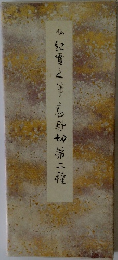 伝紀貫之筆高野切第二種